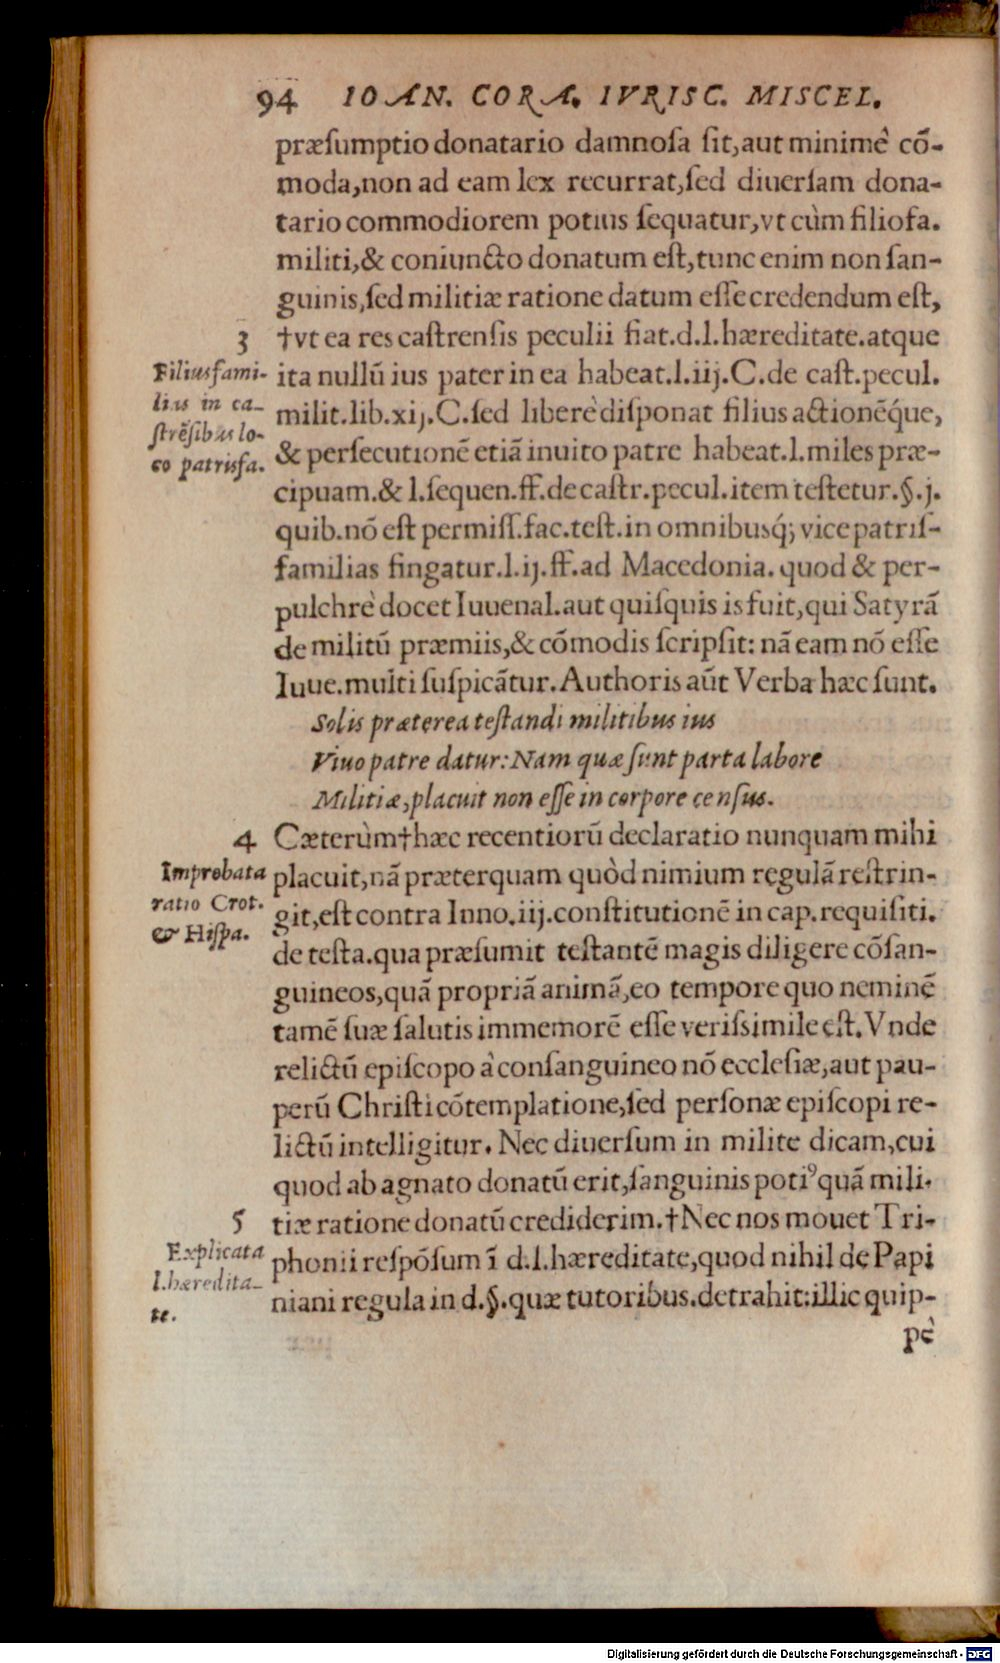 94 IOAN. CORA. IVRISC. MISCEL.
præſumptio donatario damnoſa ſit, aut minimè cõ-
moda, non ad eam lex recurrat, ſed diuerſam dona-
tario commodiorem potius ſequatur, vt cùm filiofa.
militi, & coniuncto donatum eſt, tunc enim non ſan-
guinis, ſed militiæ ratione datum eſſe credendum eſt,
3 †vt ea res caſtrenſis peculii fiat. d. l. hæreditate. atque
Filiusfami-
lias in ca-
ſtrẽſibus lo-
co patrisfa.
ita nullũ ius pater in ea habeat. l. iij. C. de caſt. pecul.
milit. lib. xij. C. ſed liberè diſponat filius actionẽq́ue,
& perſecutionẽ etiã inuito patre habeat. l. miles præ-
cipuam. & l. ſequen. ff. de caſtr. pecul. item teſtetur. §. j.
quib. nõ eſt permiſſ. fac. teſt. in omnibusq́; vice patriſ-
familias fingatur. l. ij. ff. ad Macedonia. quod & per-
pulchrè docet Iuuenal. aut quiſquis is fuit, qui Satyrã
de militũ præmiis, & cõmodis ſcripſit: nã eam nõ eſſe
Iuue. multi ſuſpicãtur. Authoris aũt Verba hæc ſunt.
Solis præterea teſtandi militibus ius
Viuo patre datur: Nam quæ ſunt parta labore
Militiæ, placuit non eſſe in corpore cenſus.
4 Cæterùm†hæc recentiorũ declaratio nunquam mihi
Improbata
ratio Crot.
& Hiſpa.
placuit, nã præterquam quòd nimium regulã reſtrin-
git, eſt contra Inno. iij. conſtitutionẽ in cap. requiſiti.
de teſta. qua præſumit teſtantẽ magis diligere cõſan-
guineos, quã propriã animã, eo tempore quo neminẽ
tamẽ ſuæ ſalutis immemorẽ eſſe veriſsimile eſt. Vnde
relictũ epiſcopo à conſanguineo nõ eccleſiæ, aut pau-
perũ Chriſti cõtemplatione, ſed perſonæ epiſcopi re-
lictũ intelligitur. Nec diuerſum in milite dicam, cui
quod ab agnato donatũ erit, ſanguinis potiꝰ quã mili-
5 tiæ ratione donatũ crediderim. †Nec nos mouet Tri-
Explicata
l. hæredita-
te.
phonii reſpõſum ĩ d. l. hæreditate, quod nihil de Papi
niani regula in d. §. quæ tutoribus. detrahit: illic quip-
pè
Digitalisierung gefördert durch die Deutsche Forschungsgemeinschaft - DFG